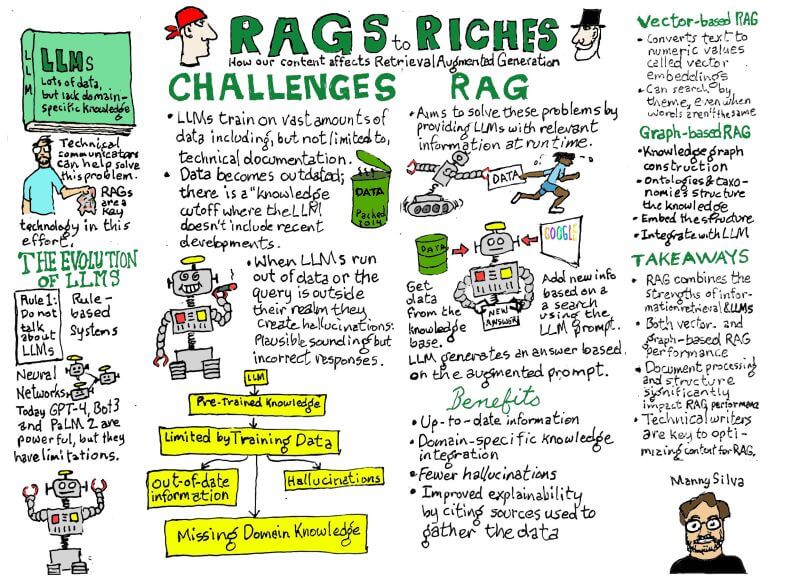 RAGS to RICHES
How our content affects Retrieval Augmented Generation
LLM
LLMs
Lots of data,
but lack domain-
specific knowledge
Technical
communicators
can help solve
this problem.
RAGs
are a
key
technology in this
effort.
THE EVOLUTION
OF LLMS
Rule 1:
Do not
talk
about
LLMs
Rule-
based
Systems
Neural
Networks
Today GPT-4, Bot3
and PaLM 2 are
powerful, but they
have limitations.
CHALLENGES
• LLMs train on vast amounts of
data including, but not limited to,
technical documentation.
• Data becomes outdated;
there is a "knowledge
cutoff where the LLM
doesn't include recent
developments.
DATA
Packed
2014
• When LLMs run
out of data or the
query is outside
their realm they
create hallucinations:
Plausible sounding but
incorrect responses.
LLM
Pre-Trained Knowledge
Limited by Training Data
Out-of-date
information
Hallucinations
Missing Domain Knowledge
RAG
• Aims to solve these problems by
providing LLMs with relevant
information at runtime.
DATA
DATA
GOOGLE
NEW
ANSWER
Get
data
from the
knowledge
base.
Add new info
based on a
a search
using the
LLM prompt.
LLM generates an answer based
on the augmented prompt.
Benefits
• Up-to-date information
• Domain-specific knowledge
integration
• Fewer hallucinations
• Improved explainability
by citing sources used to
gather the data
Vector-based RAG
• Converts text to
numeric values
called vector
embeddings
• Can search by
theme, even when
words aren't the same
Graph-based RAG
• Knowledge graph
construction
• Ontologies & taxo-
nomies structure
the knowledge
• Embed the structure
• Integrate with LLM
TAKEAWAYS
• RAG combines the
strengths of infor-
mation retrieval & LLMs
• Both vector- and
graph-based RAG
performance
• Document processing
and structure
significantly
impact RAG performance
• Technical writers
are key to opti-
mizing content for RAG.
Manny Silva